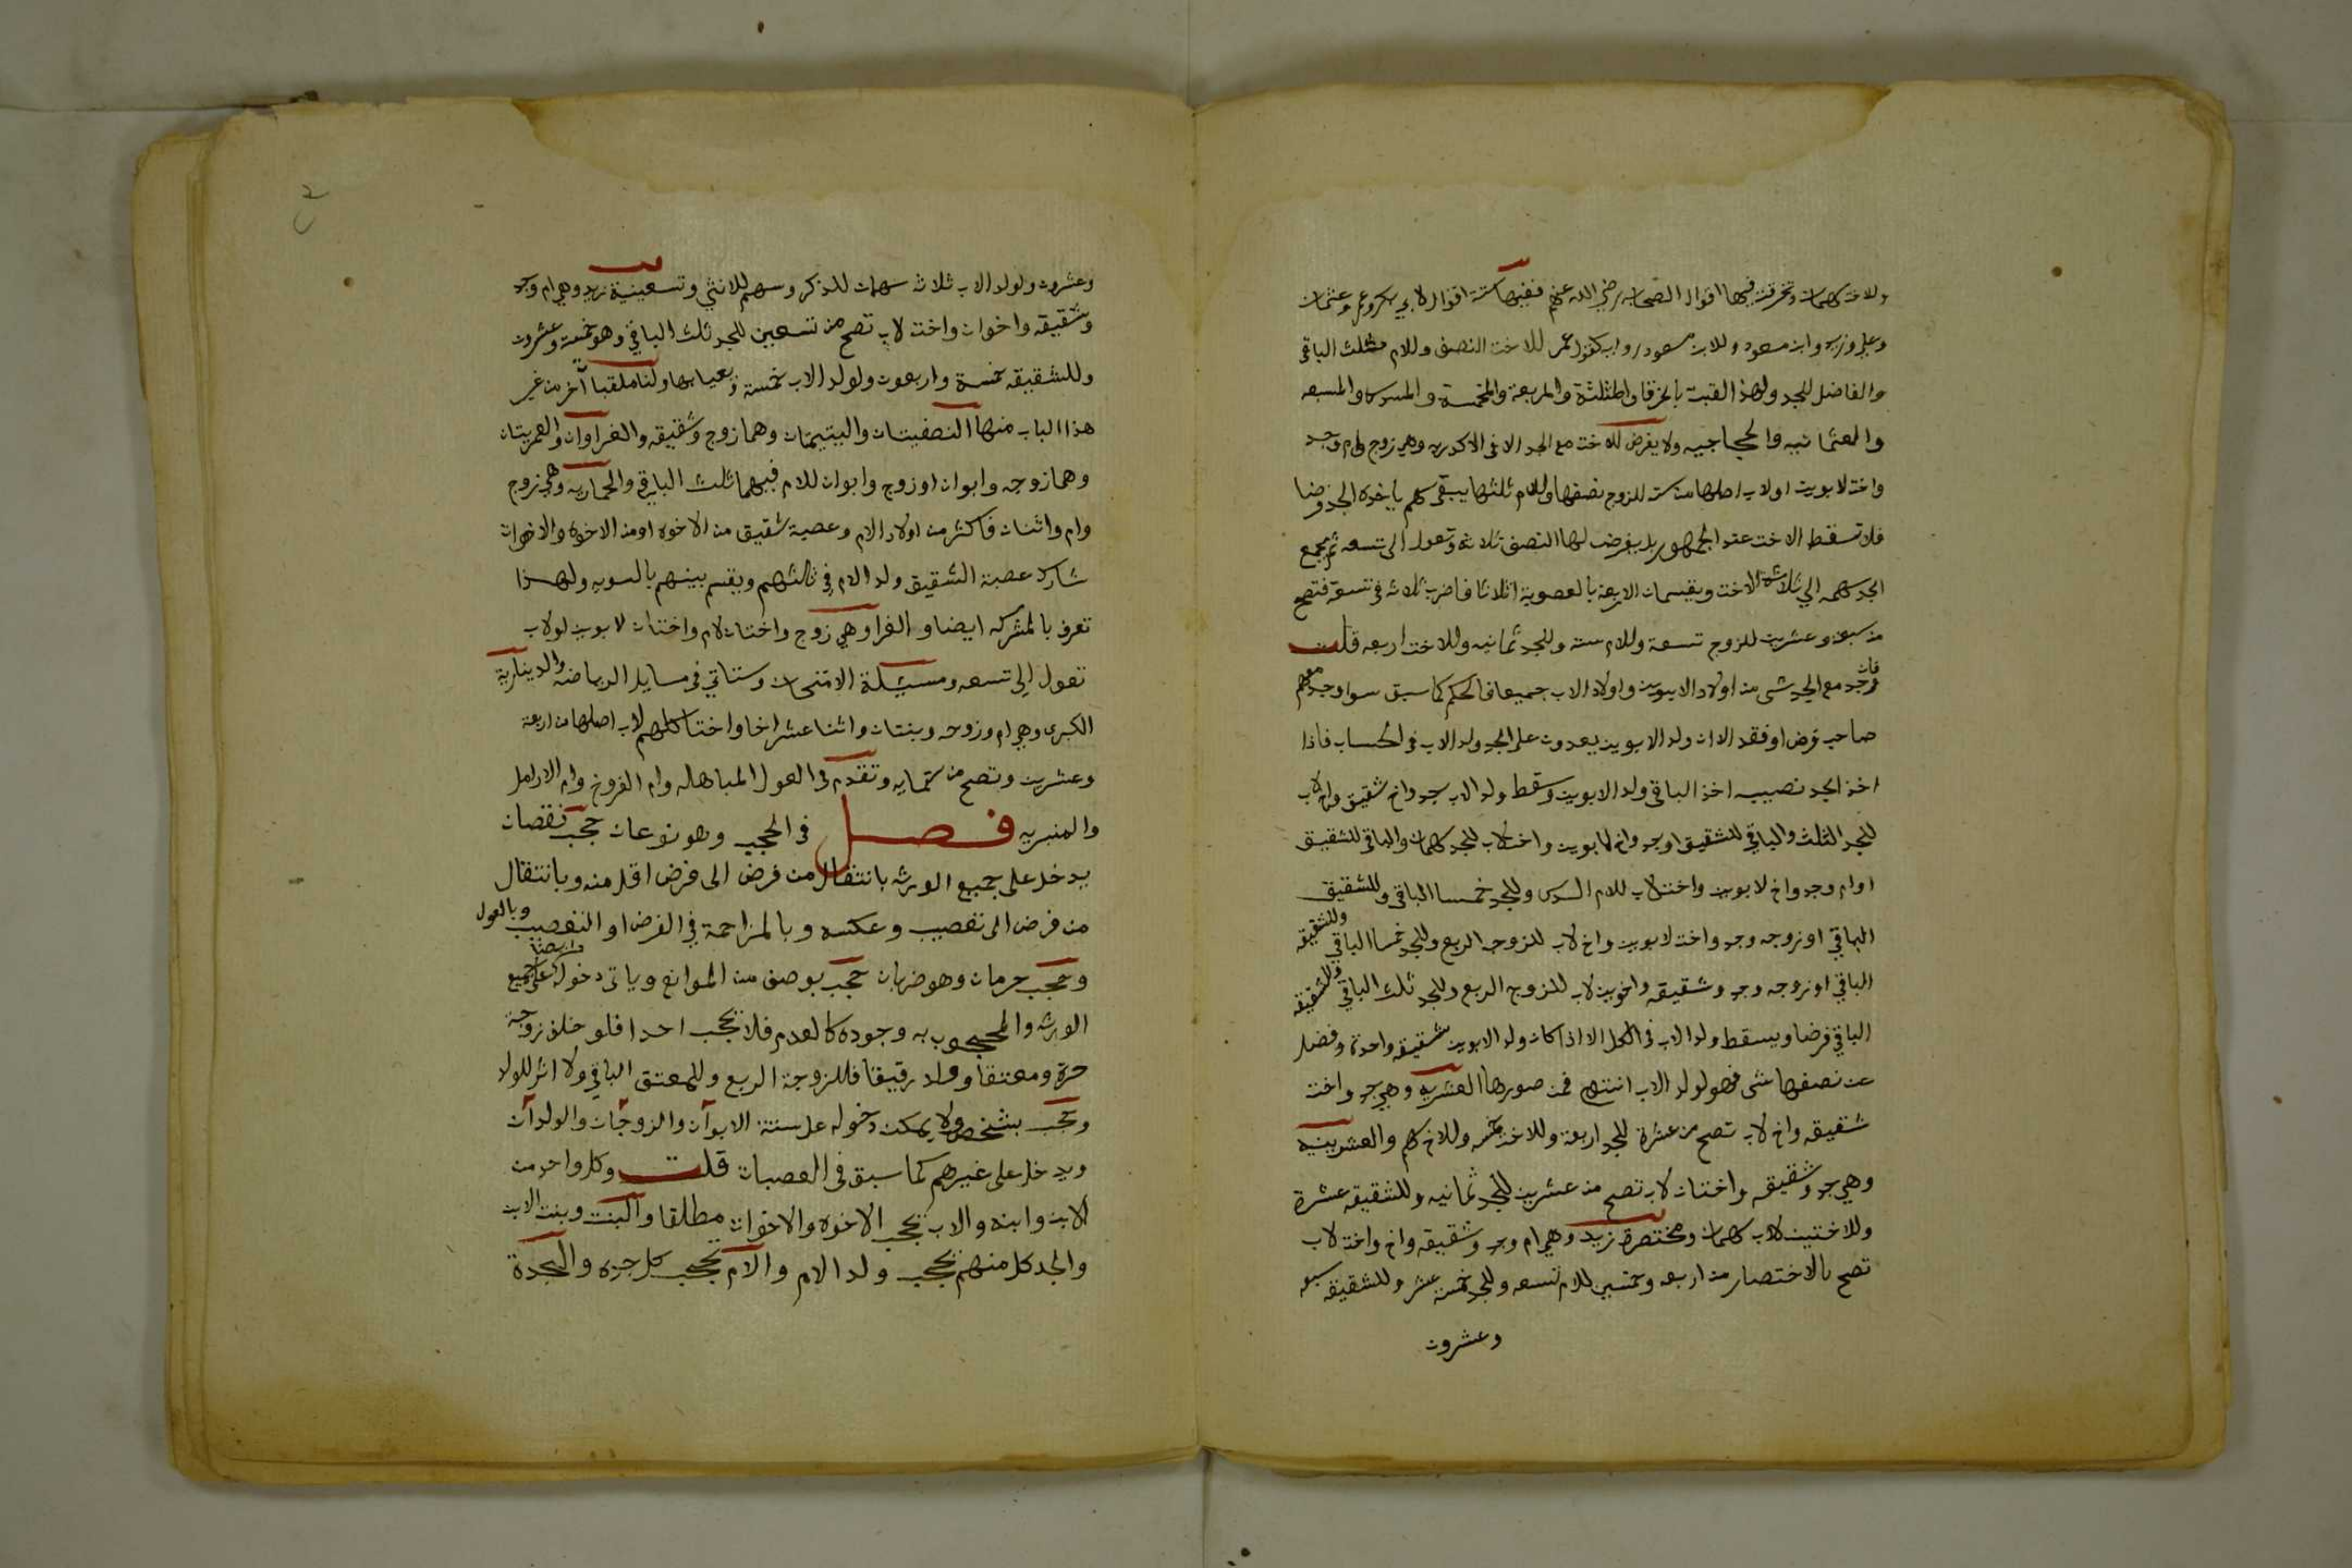 وللاخت سهمان وتخرقت فيها اقوال الصحابه رضي الله عنهم ففيها ستة اقوال لابي بكر وعمر وعثمان
وعلي وزيد وابن مسعود وللابن مسعود رواية كقول عمر للاخت النصف وللام ثلث الباقي
والفاضل للجد ولهذا لقبت بالخرقا والمثلثة والمربعة والمخمسة والمسدسة والمسبعه
والعثمانيه والحجاجيه ولا يفرض للاخت مع الجد الا في الاكدريه وهي زوج وام وجد
واخت لابوين او لاب اصلها من ستة للزوج نصفها وللام ثلثها يبقى سهم ياخذه الجد فرضا
فلا تسقط الاخت عند الجمهور بل يفرض لها النصف ثلاثة وتعول الى تسعه ثم يجمع
الجد سهمه الي ثلاثة الاخت ويقسمان الاربعة بالعصوبة اثلاثا فاضرب ثلاثه في تسعة فتصح
من سبعة وعشرين للزوج تسعة وللام ستة وللجد ثمانيه وللاخت اربعه قلت
فان وجد مع الجد شي من اولاد الابوين واولاد الاب جميعا فالحكم كما سبق سوا وجد معهم
صاحب فرض او فقد الا ان ولد الابوين يعدون على الجد ولد الاب في الحساب فاذا
اخذ الجد نصيبه اخذ الباقي ولد الابوين وسقط ولد الاب جد واخ شقيق واخ لاب
للجد الثلث والباقي للشقيق او جد واخ لابوين واخت لاب للجد سهمان والباقي للشقيق
او ام وجد واخ لابوين واخت لاب للام السدس وللجد خمسا الباقي وللشقيق
الباقي او زوجه وجد واخت لابوين واخ لاب للزوجه الربع وللجد خمسا الباقي وللشقيقه
الباقي او زوجه وجد وشقيقه واخوين لاب للزوج الربع وللجد ثلث الباقي وللشقيقه
الباقي فرضا ويسقط ولد الاب في الكل الا اذا كان ولد الابوين شقيقه واحدة وفضل
عن نصفها شي فهو لولد الاب انتهى فمن صورها العشريه وهي جد واخت
شقيقه واخ لاب تصح من عشرة للجد اربعة وللاخت خمسه وللاخ سهم والعشرينيه
وهي جد وشقيقه واختان لاب تصح من عشرين للجد ثمانيه وللشقيقه عشرة
وللاختين لاب سهمان ومختصرة زيد وهي ام وجد وشقيقه واخ واخت لاب
تصح بالاختصار من اربعه وخمسين للام تسعه وللجد خمسة عشر وللشقيقه سبعه
وعشرون
وعشرون ولولد الاب ثلاثة سهمان للذكر وسهم للانثي وتسعينية زيد وهي ام وجد
وشقيقه واخوان واخت لاب تصح من تسعين للجد ثلث الباقي وهو خمسة وعشرون
وللشقيقه خمسة واربعون ولولد الاب خمسة ولنا ملقبات آخر من غير
هذا الباب منها النصفيتان واليتيمتان وهما زوج وشقيقه والغراوان والعمريتان
وهما زوجه وابوان او زوج وابوان للام فيهما ثلث الباقي والحماريه وهي زوج
وام واثنان فاكثر من اولاد الام وعصبة شقيق من الاخوه او من الاخوه والاخوات
شارك عصبة الشقيق ولد الام في ثلثهم ويقسم بينهم بالسويه ولهذا
تعرف بالمشركه ايضا والغرا وهي زوج واختان لام واختان لابوين او لاب
تعول الي تسعه ومسئلة الامتحان وستاتي في مسايل الرياضه والدينارية
الكبرى وهي ام وزوجه وبنتان واثنا عشر اخا واختا كلهم لاب اصلها من اربعة
وعشرين وتصح من ستمايه وتقدم في العول المباهله وام الفروخ وام الارامل
والمنبريه فصل في الحجب وهو نوعان حجب نقصان
يدخل على جميع الورثه بانتقال من فرض الى فرض اقل منه وبانتقال
من فرض الى تعصيب وعكسه وبالمزاحمة في الفرض او التعصيب وبالعول
وحجب حرمان وهو ضربان حجب بوصف من الموانع وياتى دخوله ايضا على جميع
الورثه والمحجوب به وجوده كالعدم فلا يحجب احدا فلو خلف زوجة
حرة ومعتقا وولد رقيقا فللزوجة الربع وللمعتق الباقي ولا اثر للولد
وحجب بشخص ولا يمكن دخوله على ستة الابوان والزوجان والولدان
ويدخل على غيرهم كما سبق في العصبات قلت وكل واحد من
الابن وابنه والاب يحجب الاخوه والاخوات مطلقا والبنت وبنت الابن
والجد كل منهم يحجب ولد الام والام تحجب كل جده والجدة